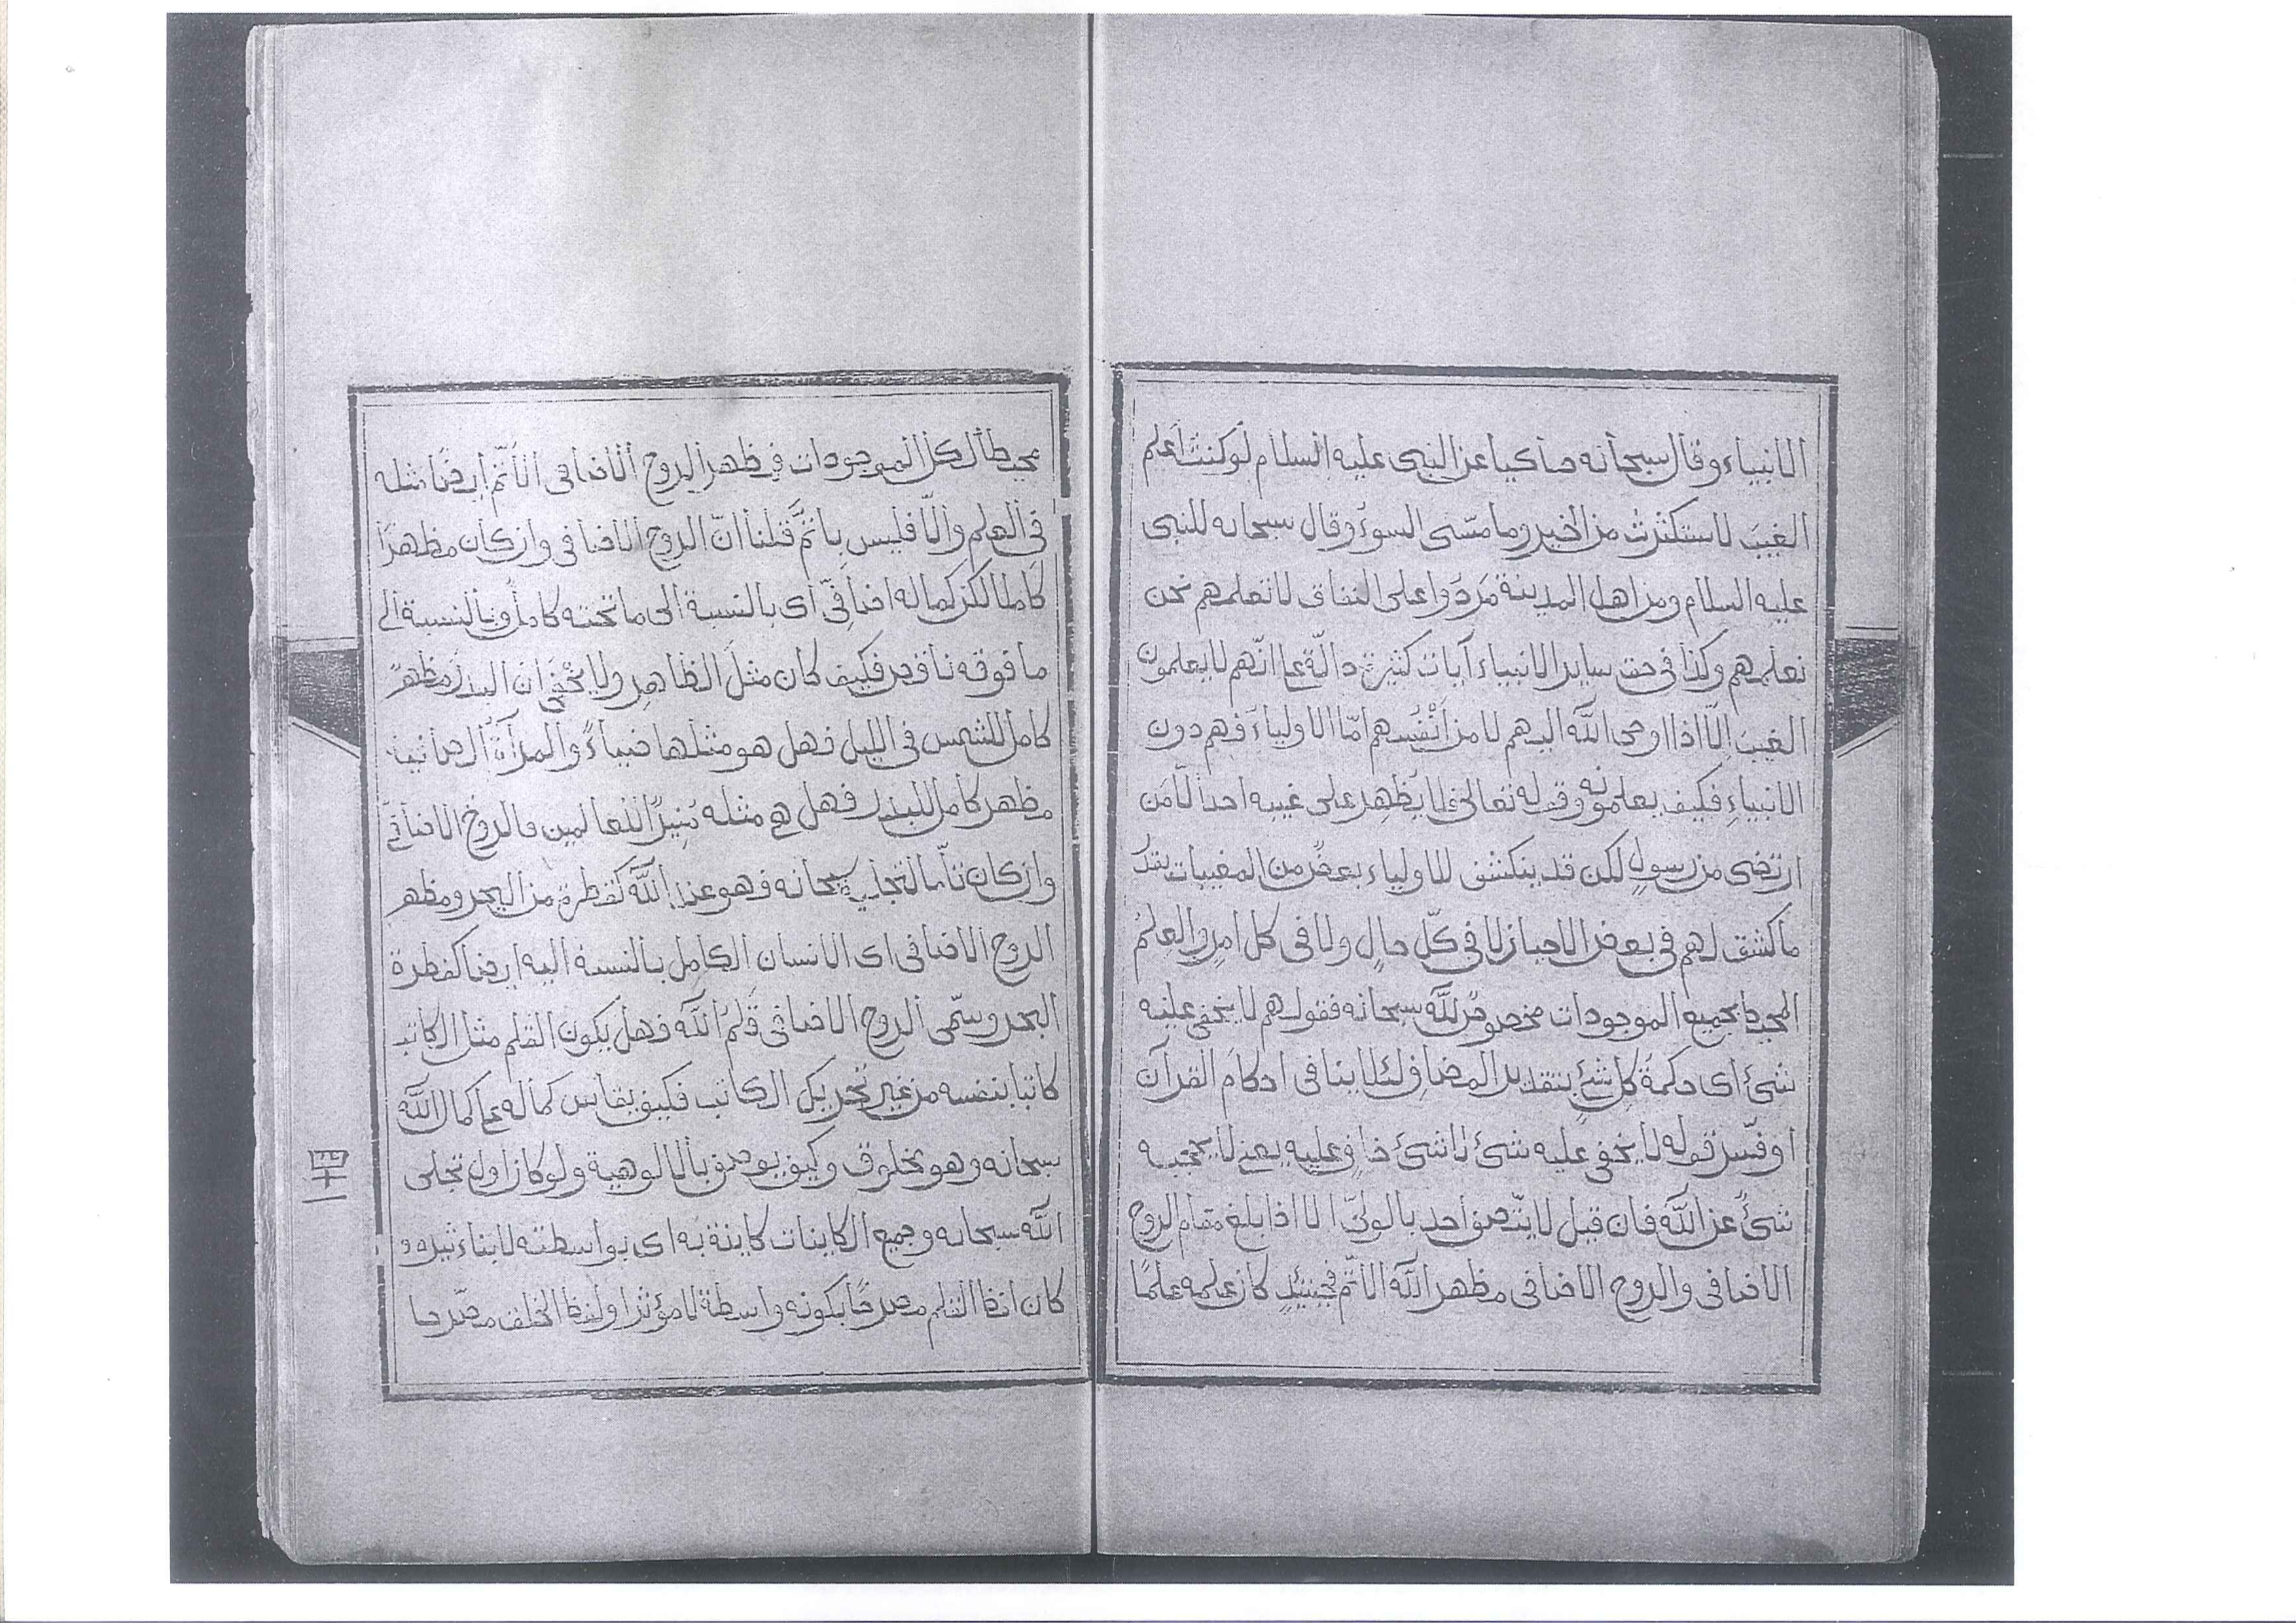 الانبياء وقال سبحانه حاكيا عن النبى عليه السلام لو كنت اعلم
الغيب لاستكثرت من الخير وما مسّنى السوء وقال سبحانه للنبى
عليه السلام ومن اهل المدينة مَرَدُوا على النفاق لا تعلمهم نحن
نعلمهم وكذا فى حق ساير الانبياء آيات كثيرة دالّة على انّهم لا يعلمون
الغيبَ اِلّا اذا اوحى اللّٰه اليهم لا من اَنْفُسِهم امّا الاولياءَ فهم دون
الانبياءِ فكيف يعلمونه وقوله تعالى فلا يُظهِر على غيبه احدا الّا مَن
ارتضى من رسولٍ لكن قد ينكشف للاولياء بعضٌ من المغيبات بقدر
ما كشف لهم فى بعض الاحيان لا فى كلّ حالٍ ولا فى كل امرٍ والعِلْم
المحيط بجميع الموجودات مخصوصٌ للّٰه سبحانه فقولهم لا يخفى عليه
شئ اى حكمةُ كلِ شئٍ بتقدير المضاف لئلا ينافى احكامَ القرآن
او فسّر قوله لا يخفى عليه شئ لا شئ خافٍ عليه يعنى لا يحجبه
شئٌ عن اللّٰه فان قيل لا يتّصف احد بالولىّ الا اذا بلغ مقام الروح
الاضافى والروح الاضافى مظهر اللّٰه الاتمّ فحينئذٍ كان علمه علمًا
محيطا لكل الموجودات فمظهر الروح الاضافى الاَتمّ ايضًا مثله
فى العلم والّا فليس باتمَّ قلنا انّ الروح الاضافى وان كان مظهرًا
كاملا لكن كماله اضافىّ اى بالنسبة الى ما تحته كاملٌ وبالنسبة الى
ما فوقه ناقص فكيف كان مثلَ الظاهِر ولا يَخْفى ان البدر مظهرٌ
كامل للشمس فى الليل فهل هو مثلها ضياءً والمرآةُ الصافية
مظهر كامل للبدر فهل هى مثله مُنيرًا للعالمين فالروح الاضافىّ
وان كان تامّا لتجلّيه سبحانه فهو عند اللّٰه كقطرة من البحر ومظهر
الروح الاضافى اى الانسان الكامل بالنسبة اليه ايضا كقطرة
البحر وسمّى الروح الاضافى قَلَمَ اللّٰه فهل يكون القلم مثل الكاتب
كاتبا بنفسه من غير تحريك الكاتب فكيف يقاس كماله على كمال اللّٰه
سبحانه وهو مخلوق وكيف يوصف بالالوهية ولو كان اول تجلى
اللّٰه سبحانه وجميع الكاينات كاينة به اى بواسطته لا بتاءثيره و
كان لفظ القلم مصرحًا بكونه واسطة لا مؤثرا ولفظ الخلف مصرّحا
四十一